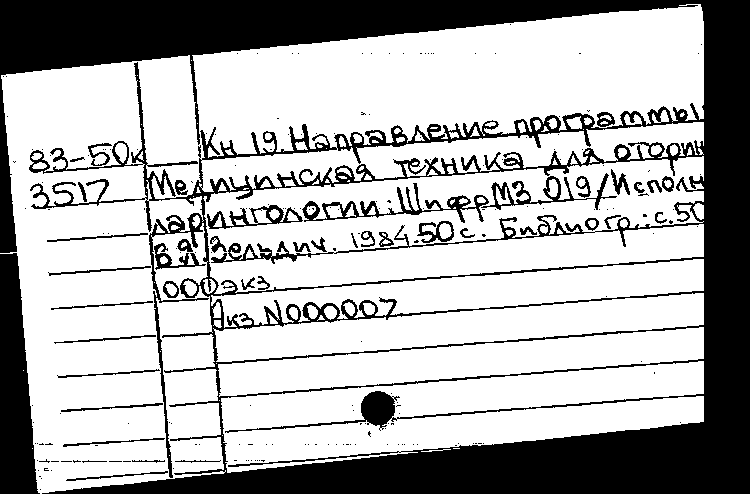 83-50к Кн 19. Направление программы
3517 Медицинская техника для оторин
ларингологии: Шифр МЗ.019/Исполн
В.Я.Зельдич. 1984.50с. Библиогр.: с.50
1000экз.
Экз.N000007